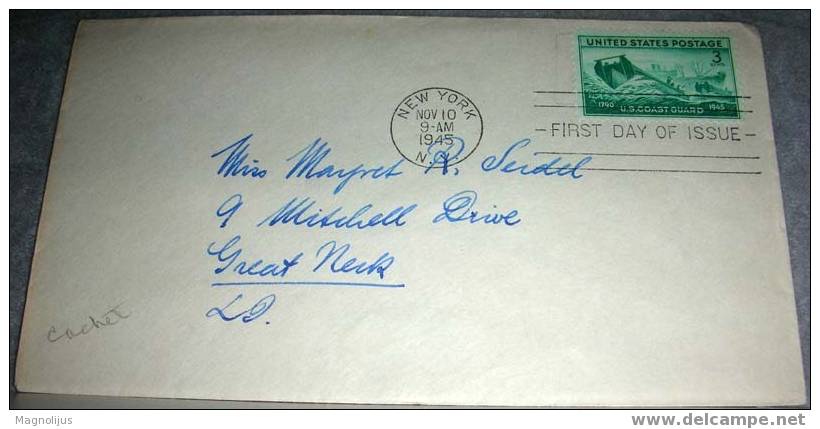 UNITED STATES POSTAGE
3
CENTS
1790 U.S. COAST GUARD 1945
NEW YORK
NOV 10
9-AM
1945
N.Y.
FIRST DAY OF ISSUE
Miss Margret R. Seidel
9 Mitchell Drive
Great Neck
L.I.
cachet
Magnolijus
www.delcampe.net